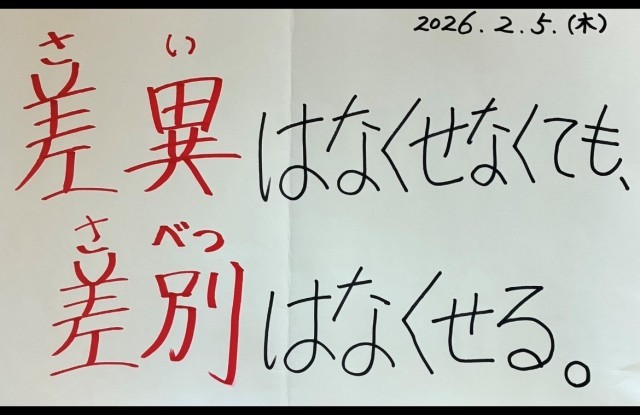 2026.2.5.(木)
さい
差異はなくせなくても、
さべつ
差別はなくせる。